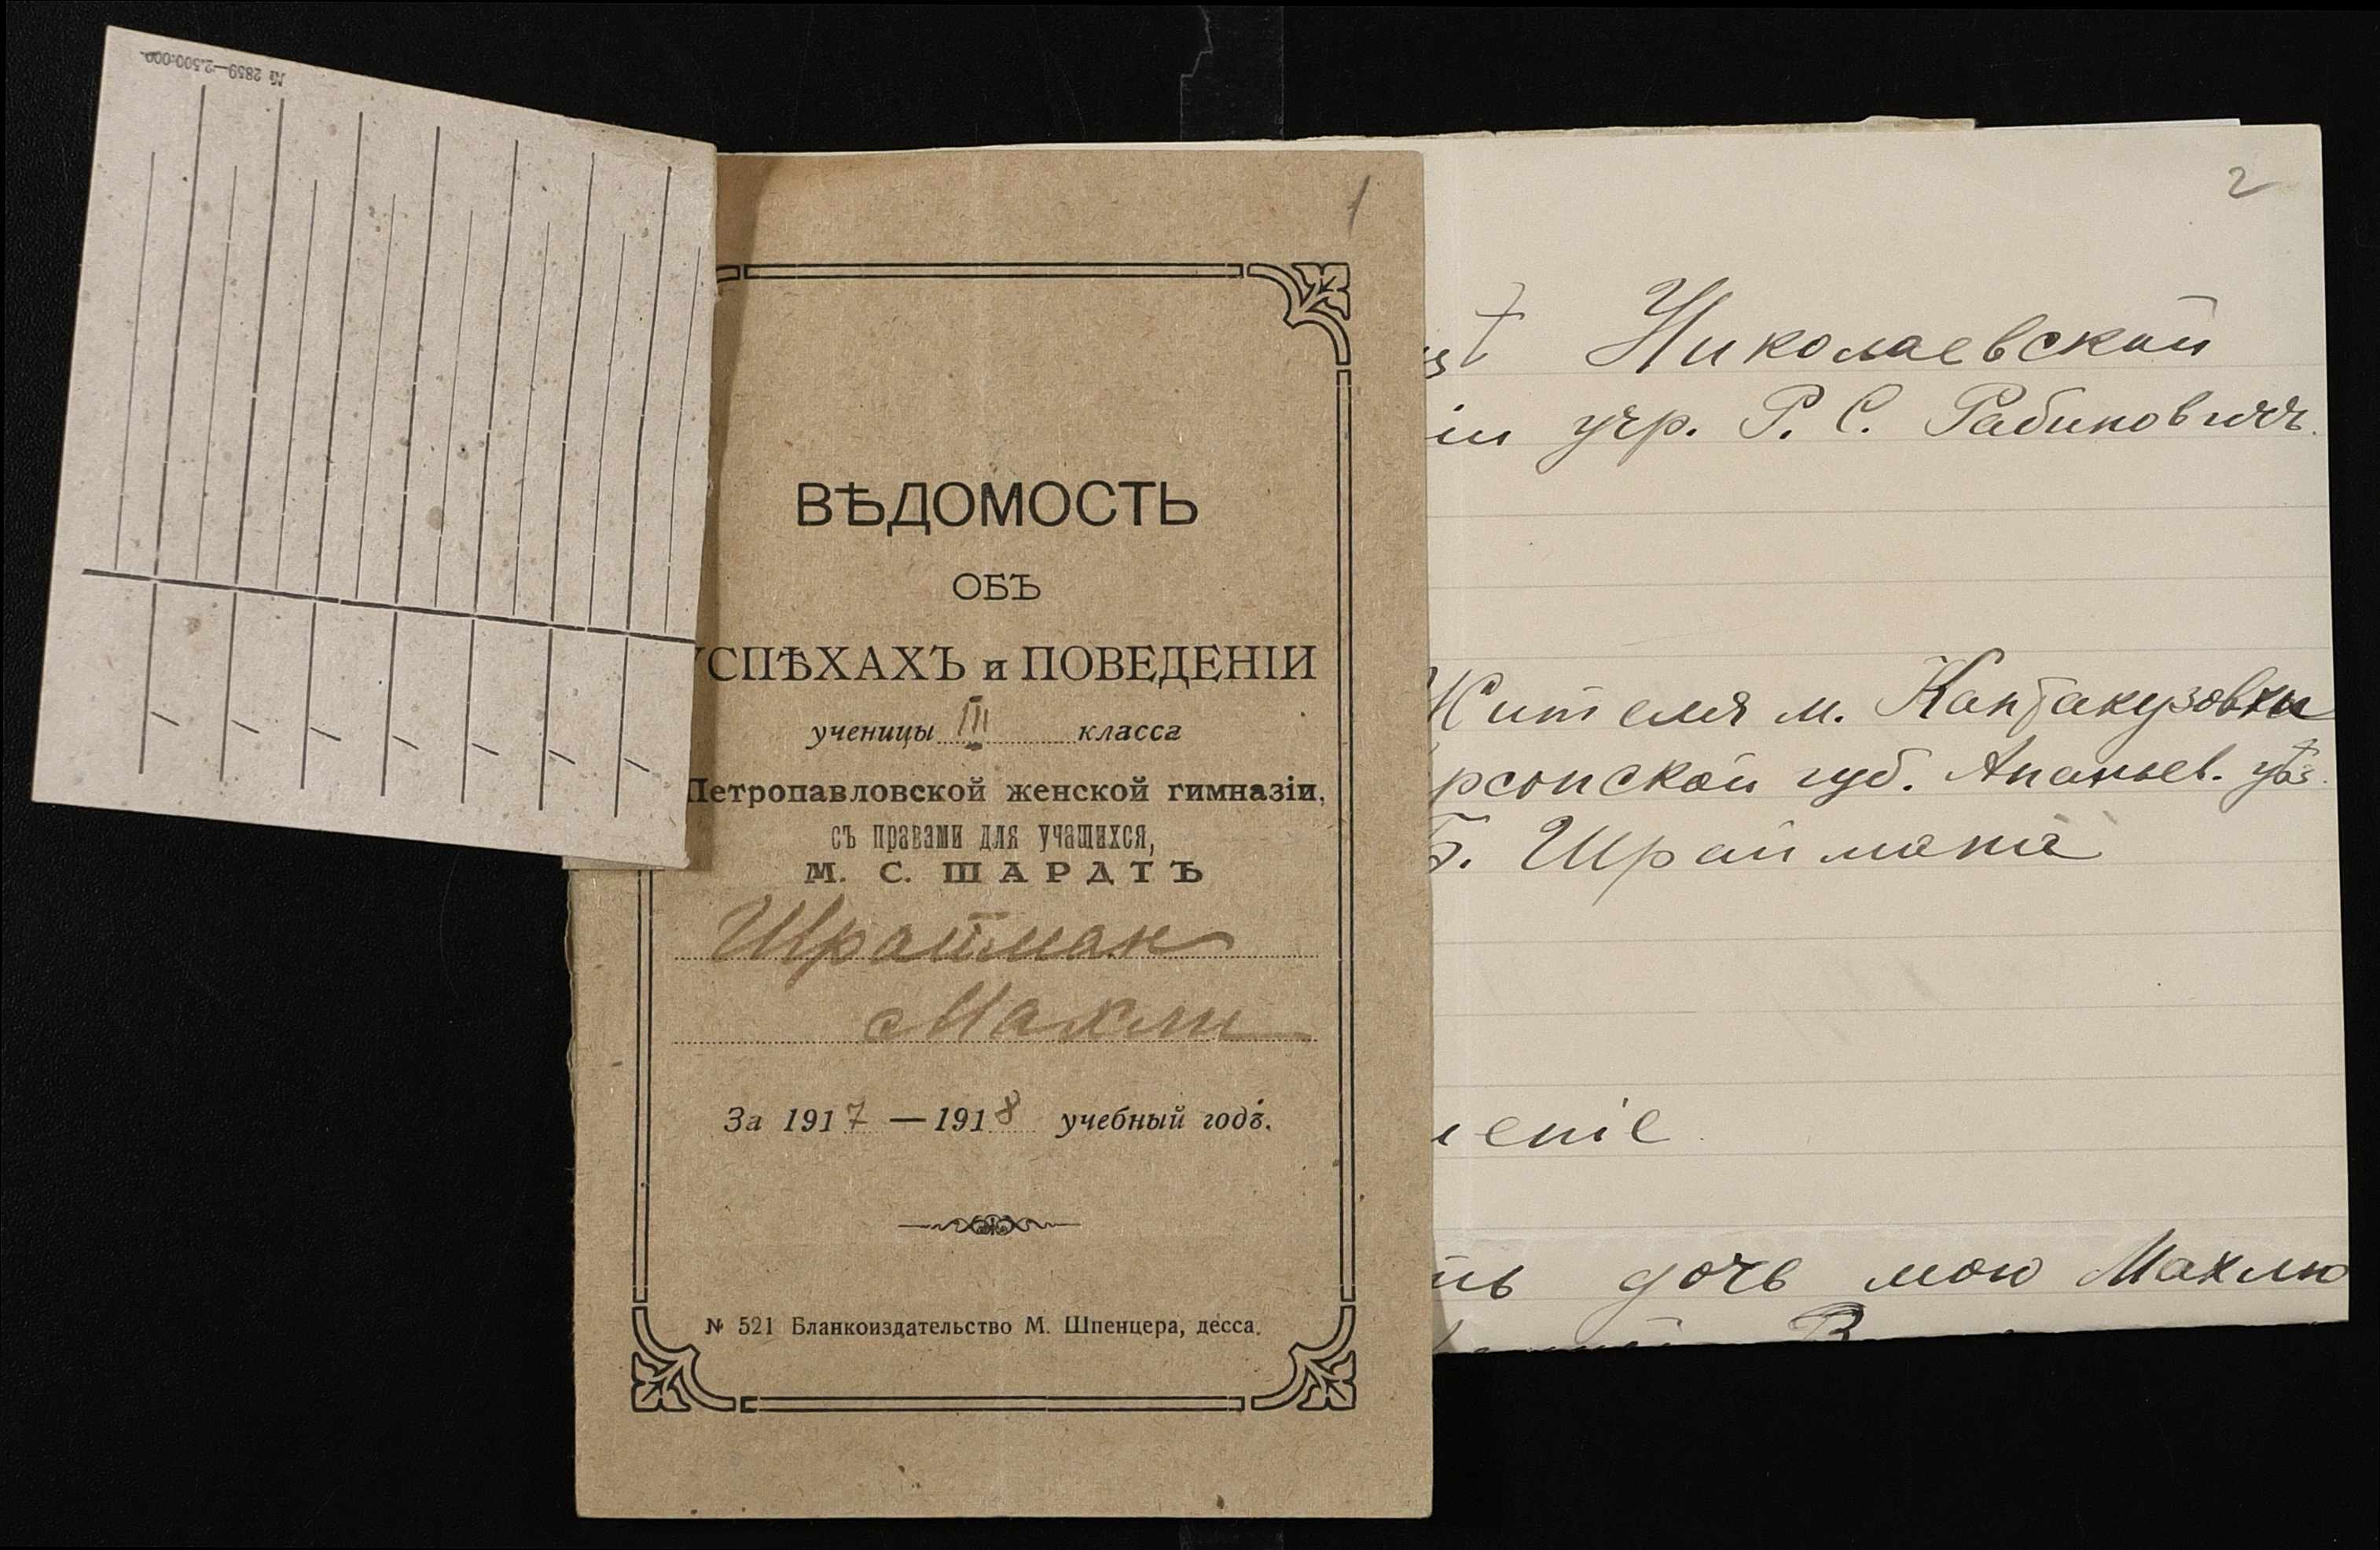 № 2859—2.500.000.
1
ВѢДОМОСТЬ
ОБЪ
УСПѢХАХЪ и ПОВЕДЕНІИ
ученицы III класса
Петропавловской женской гимназіи,
съ правами для учащихся,
М. С. ШАРДТЪ
Шрайман
Махли
За 1917 — 1918 учебный годъ.
№ 521 Бланкоиздательство М. Шпенцера, десса.
2
Николаевской
іи учр. Р. С. Рабиновичъ.
Жителя м. Кантакузовки
рсонской губ. Ананьев. уѣз.
Б. Шраймана
еніе
ть дочь мою Махлю